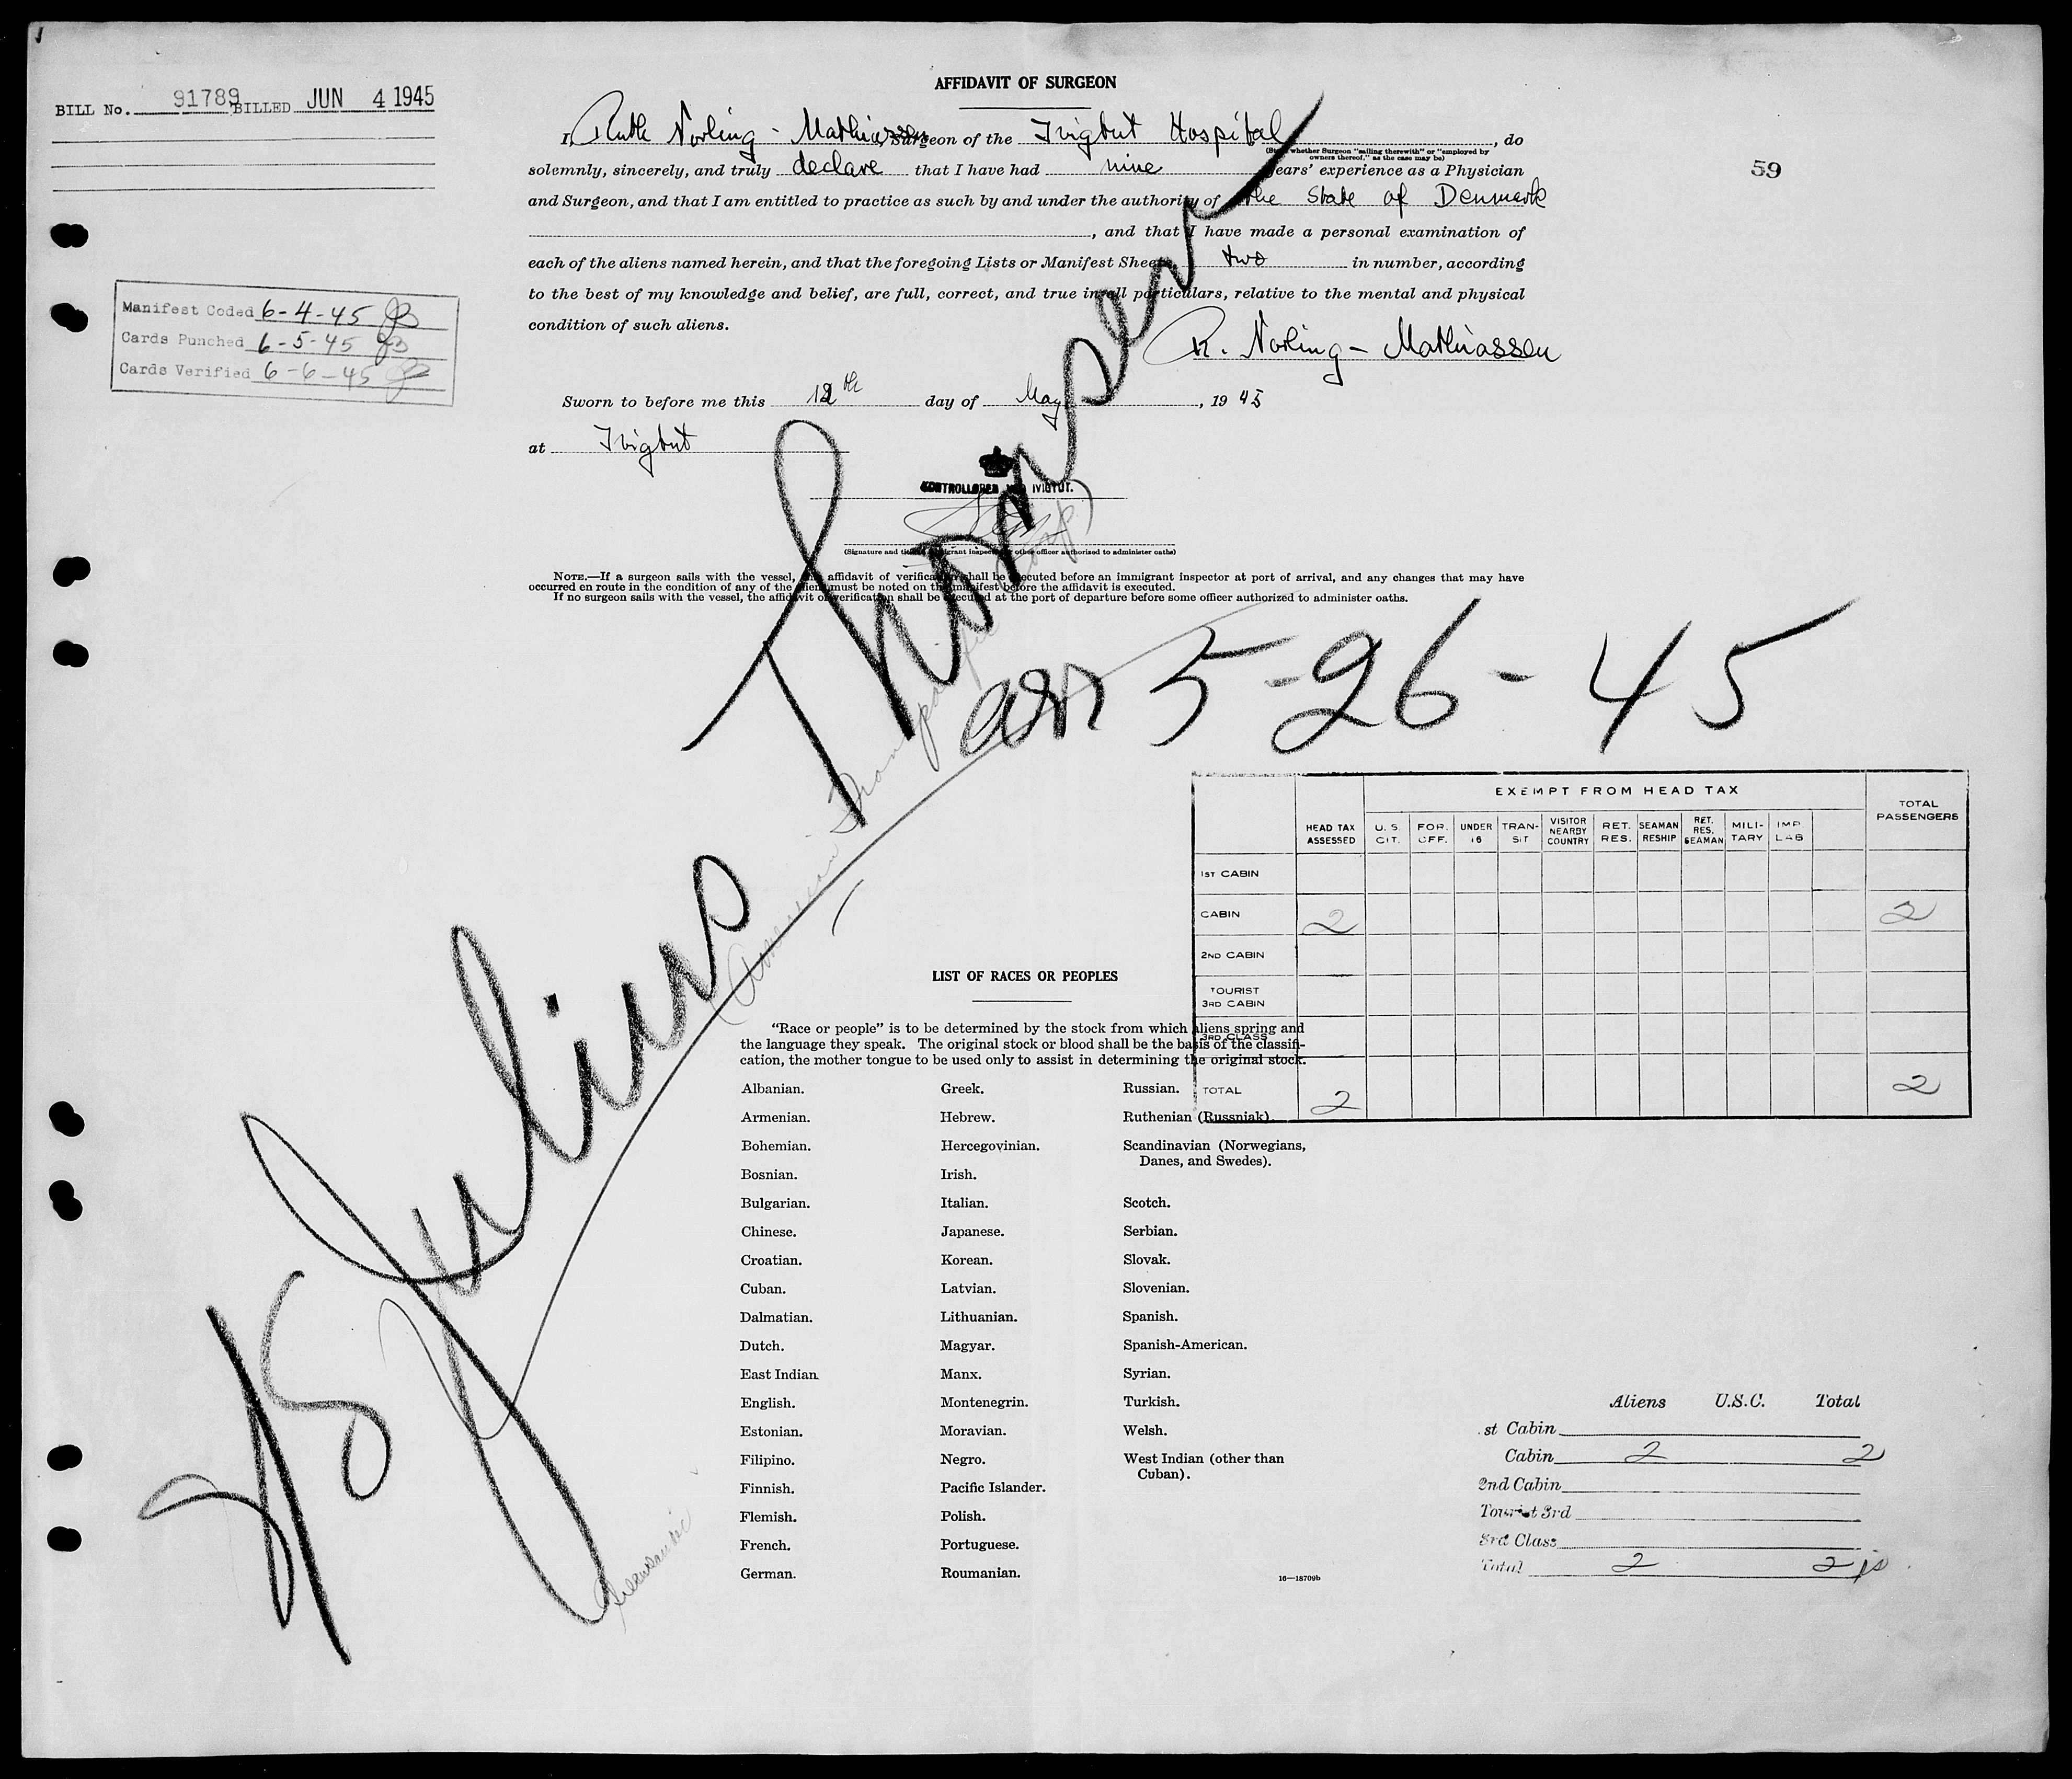 BILL No. 91789 BILLED JUN 4 1945
59
Manifest Coded 6-4-45
Cards Punched 6-5-45
Cards Verified 6-6-45
AFFIDAVIT OF SURGEON
I, Ruth Norling - Mathiassen Surgeon of the Ivigtut Hospital, do
(State whether Surgeon "sailing therewith" or "employed by
owners thereof," as the case may be)
solemnly, sincerely, and truly declare that I have had nine years' experience as a Physician
and Surgeon, and that I am entitled to practice as such by and under the authority of the State of Denmark
, and that I have made a personal examination of
each of the aliens named herein, and that the foregoing Lists or Manifest Sheets two in number, according
to the best of my knowledge and belief, are full, correct, and true in all particulars, relative to the mental and physical
condition of such aliens.
R. Norling - Mathiassen
Sworn to before me this 12th day of May, 1945
at Ivigtut
KONTROLLØREN VED IVIGTUT.
(Signature and title of immigrant inspector or other officer authorized to administer oaths)
NOTE.—If a surgeon sails with the vessel, the affidavit of verification shall be executed before an immigrant inspector at port of arrival, and any changes that may have
occurred en route in the condition of any of the aliens must be noted on the manifest before the affidavit is executed.
If no surgeon sails with the vessel, the affidavit of verification shall be executed at the port of departure before some officer authorized to administer oaths.
S/S Julius Thomsen
arr 5-26-45
EXEMPT FROM HEAD TAX
HEAD TAX ASSESSED U. S. CIT. FOR. OFF. UNDER 16 TRANSIT VISITOR NEARBY COUNTRY RET. RES. SEAMAN RESHIP RET. RES. SEAMAN MILITARY IMP LAB TOTAL PASSENGERS
1ST CABIN
CABIN 2 2
2ND CABIN
TOURIST 3RD CABIN
3RD CLASS
TOTAL 2 2
LIST OF RACES OR PEOPLES
"Race or people" is to be determined by the stock from which aliens spring and
the language they speak. The original stock or blood shall be the basis of the classifi-
cation, the mother tongue to be used only to assist in determining the original stock.
Albanian. Greek. Russian.
Armenian. Hebrew. Ruthenian (Russniak).
Bohemian. Hercegovinian. Scandinavian (Norwegians,
Danes, and Swedes).
Bosnian. Irish.
Bulgarian. Italian. Scotch.
Chinese. Japanese. Serbian.
Croatian. Korean. Slovak.
Cuban. Latvian. Slovenian.
Dalmatian. Lithuanian. Spanish.
Dutch. Magyar. Spanish-American.
East Indian Manx. Syrian.
English. Montenegrin. Turkish.
Estonian. Moravian. Welsh.
Filipino. Negro. West Indian (other than
Cuban).
Finnish. Pacific Islander.
Flemish. Polish.
French. Portuguese.
German. Roumanian.
16—18709b
Aliens U.S.C. Total
st Cabin
Cabin 2 2
2nd Cabin
Tourist 3rd
3rd Class
Total 2 2 js